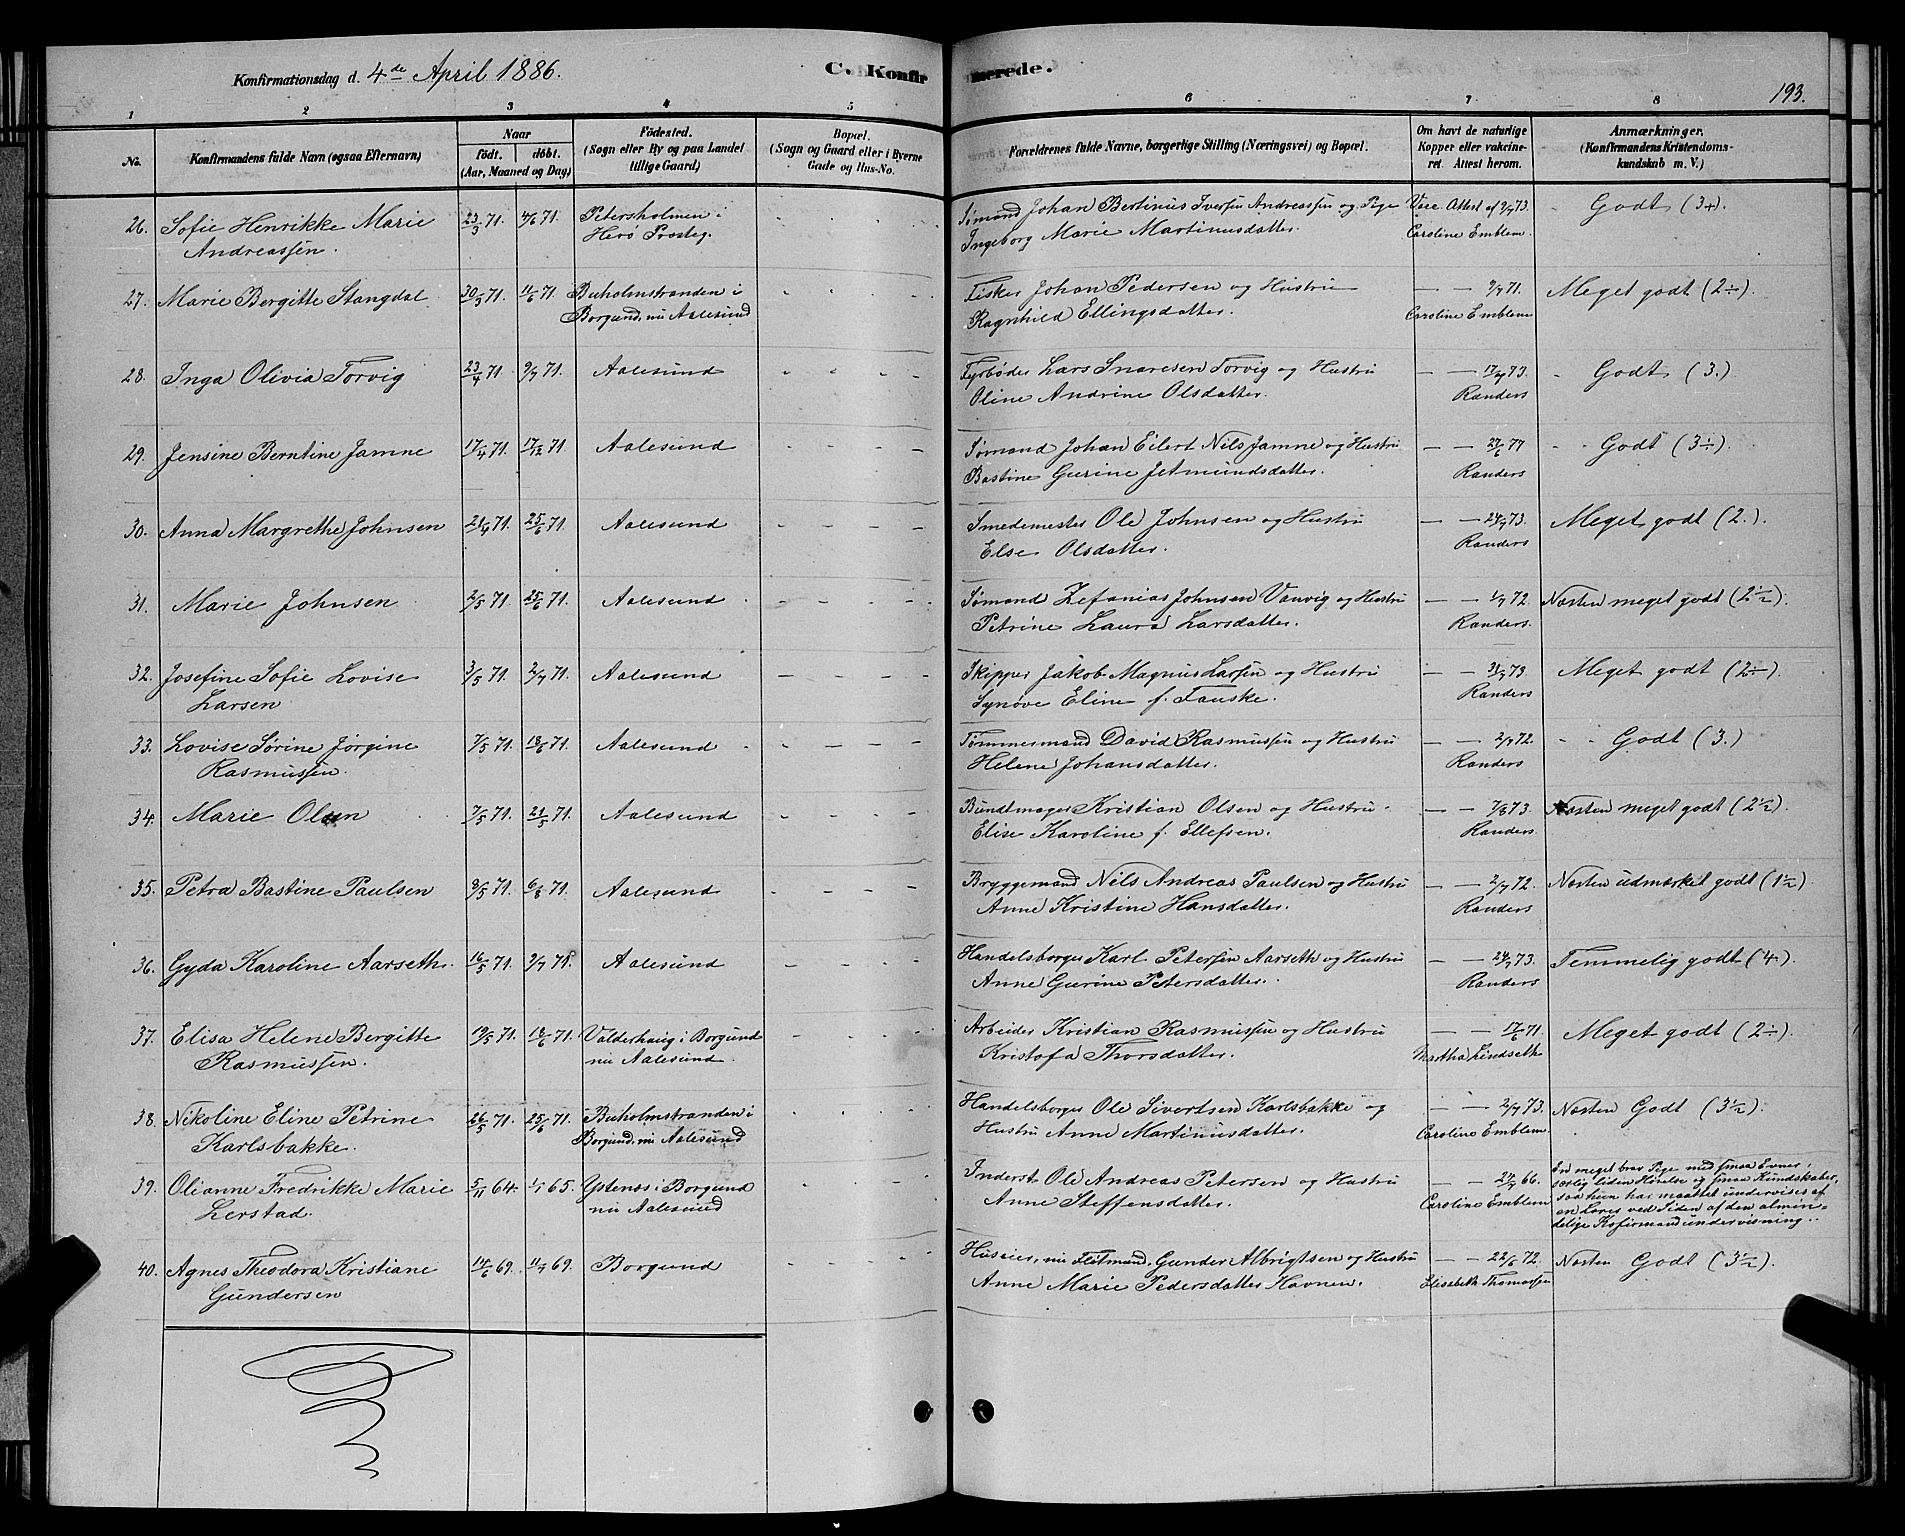 Konfirmationsdag d. 4de April 1886.
C. Konfirmerede.
193.
1 2 3 4 5 6 7 8
No.
Konfirmandens fulde Navn (ogsaa Efternavn)
Naar
födt. döbt.
(Aar, Maaned og Dag)
Födested.
(Sogn eller By og paa Landet
tillige Gaard)
Bopæl.
(Sogn og Gaard eller i Byerne
Gade og Hus-No.
Forældrenes fulde Navne, borgerlige Stilling (Næringsvei) og Bopæl.
Om havt de naturlige
Kopper eller vakcine-
ret. Attest herom.
Anmærkninger.
(Konfirmandens Kristendoms-
kundskab m. V.)
26. Sofie Henrikke Marie 23/3 71. 4/6 71. Petersholmen i Sømand Johan Bertinus Iversen Andreassen og Pige Vacc. Attest af 2/7 73. Godt (3+)
Andreassen. Herø Præsteg. Ingeborg Marie Martinusdatter. Caroline Emblem.
27. Marie Bergitte Stangdal 30/3 71. 11/6 71. Buholmstranden i Fisker Johan Pedersen og Hustru — — 9/7 71. Meget godt (2÷).
Borgund, nu Aalesund Ragnhild Ellingsdatter. Caroline Emblem
28. Inga Olivia Torvig 23/4 71. 9/7 71. Aalesund Fyrbøder Lars Snaresen Torvig og Hustru — — 17/7 73. Godt (3.)
Oline Andrine Olsdatter. Randers
29. Jensine Berntine Jamne 17/4 71. 17/12 71. Aalesund Sømand Johan Eilert Nils Jamne og Hustru — — 27/6 77 Godt (3÷).
Bastine Gurine Jetmundsdatter. Randers
30. Anna Margrethe Johnsen 21/4 71. 25/6 71. Aalesund Smedemester Ole Johnsen og Hustru — — 24/7 73. Meget godt (2.).
Else Olsdatter. Randers
31. Marie Johnsen 2/5 71. 25/6 71. Aalesund Sømand Zefanias Johnsen Vanvig og Hustru — — 1/7 72. Næsten meget godt (2 1/2).
Petrine Laura Larsdatter. Randers.
32. Josefine Sofie Lovise 3/5 71. 2/7 71. Aalesund Skipper Jakob Magnus Larsen og Hustru — — 31/7 73. Meget godt (2÷)
Larsen Synøve Eline f. Fauske. Randers
33. Lovise Sørine Jørgine 7/5 71. 18/6 71. Aalesund Tømmermand David Rasmussen og Hustru — — 2/7 72. Godt (3.)
Rasmussen. Helene Johansdatter. Randers
34. Marie Olsen 7/5 71. 21/5 71. Aalesund Bundtmager Kristian Olsen og Hustru — — 7/8 73. Næsten meget godt (2 1/2)
Elise Karoline f. Ellefsen. Randers.
35. Petra Bastine Paulsen 8/5 71. 6/8 71. Aalesund Bryggemand Nils Andreas Paulsen og Hustru — — 2/7 72. Næsten udmærket godt (1 1/2)
Anne Kristine Hansdatter. Randers
36. Gyda Karoline Aarseth. 16/5 71. 2/7 71. Aalesund Handelsborger Karl Petersen Aarseth og Hustru — — 24/7 73. Temmelig godt (4.)
Anne Gurine Petersdatter. Randers
37. Elisa Helene Bergitte 19/5 71. 18/6 71. Valderhaug i Borgund Arbeider Kristian Rasmussen og Hustru — — 17/6 71. Meget godt (2÷).
Rasmussen. nu Aalesund. Kristofa Thorsdatter. Martha Lindseth
38. Nikoline Eline Petrine 26/5 71. 25/6 71. Buholmstranden i Handelsborger Ole Sivertsen Karlsbakke og — — 2/7 73. Næsten Godt (3 1/2).
Karlsbakke. Borgund, nu Aalesund Hustru Anne Martinusdatter. Caroline Emblem.
39. Olianne Fredrikke Marie 5/11 64. 1/1 65. Ystenæs i Borgund Inderst Ole Andreas Petersen og Hustru — — 24/7 66. En meget brav Pige med smaa Evner,
Lerstad. nu Aalesund Anne Steffensdatter. Caroline Emblem særlig liden Hørelse og smaa Kundskaber,
saa hun har maattet undervises af
en Lærer ved Siden af den almin-
delige Kofirmandundervisning.
40. Agnes Theodora Kristiane 14/6 69. 11/7 69. Borgund Huseier, nu Fløtmand, Gunder Albrigtsen og Hustru — — 22/6 72. Næsten Godt (3 1/2).
Gundersen Anne Marie Pedersdatter Havnen. Elisabeth Thomassen